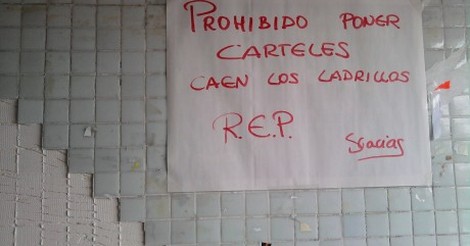 PROHIBIDO PONER
CARTELES
CAEN LOS LADRILLOS
R.E.P.
Gracias